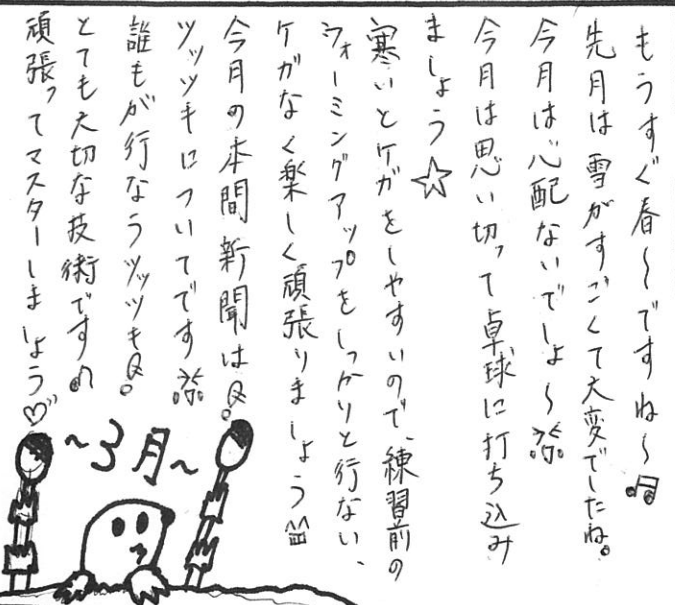 もうすぐ春〜ですね〜♫
先月は雪がすごくて大変でしたね。
今月は心配ないでしょ〜
今月は思い切って卓球に打ち込み
ましょう☆
寒いとケガをしやすいので、練習前の
ウォーミングアップをしっかりと行ない、
ケガなく楽しく頑張りましょう
今月の本間新聞は
ツッツキについてです
誰もが行なうツッツキ
とても大切な技術です♪
頑張ってマスターしましょう♡
〜3月〜